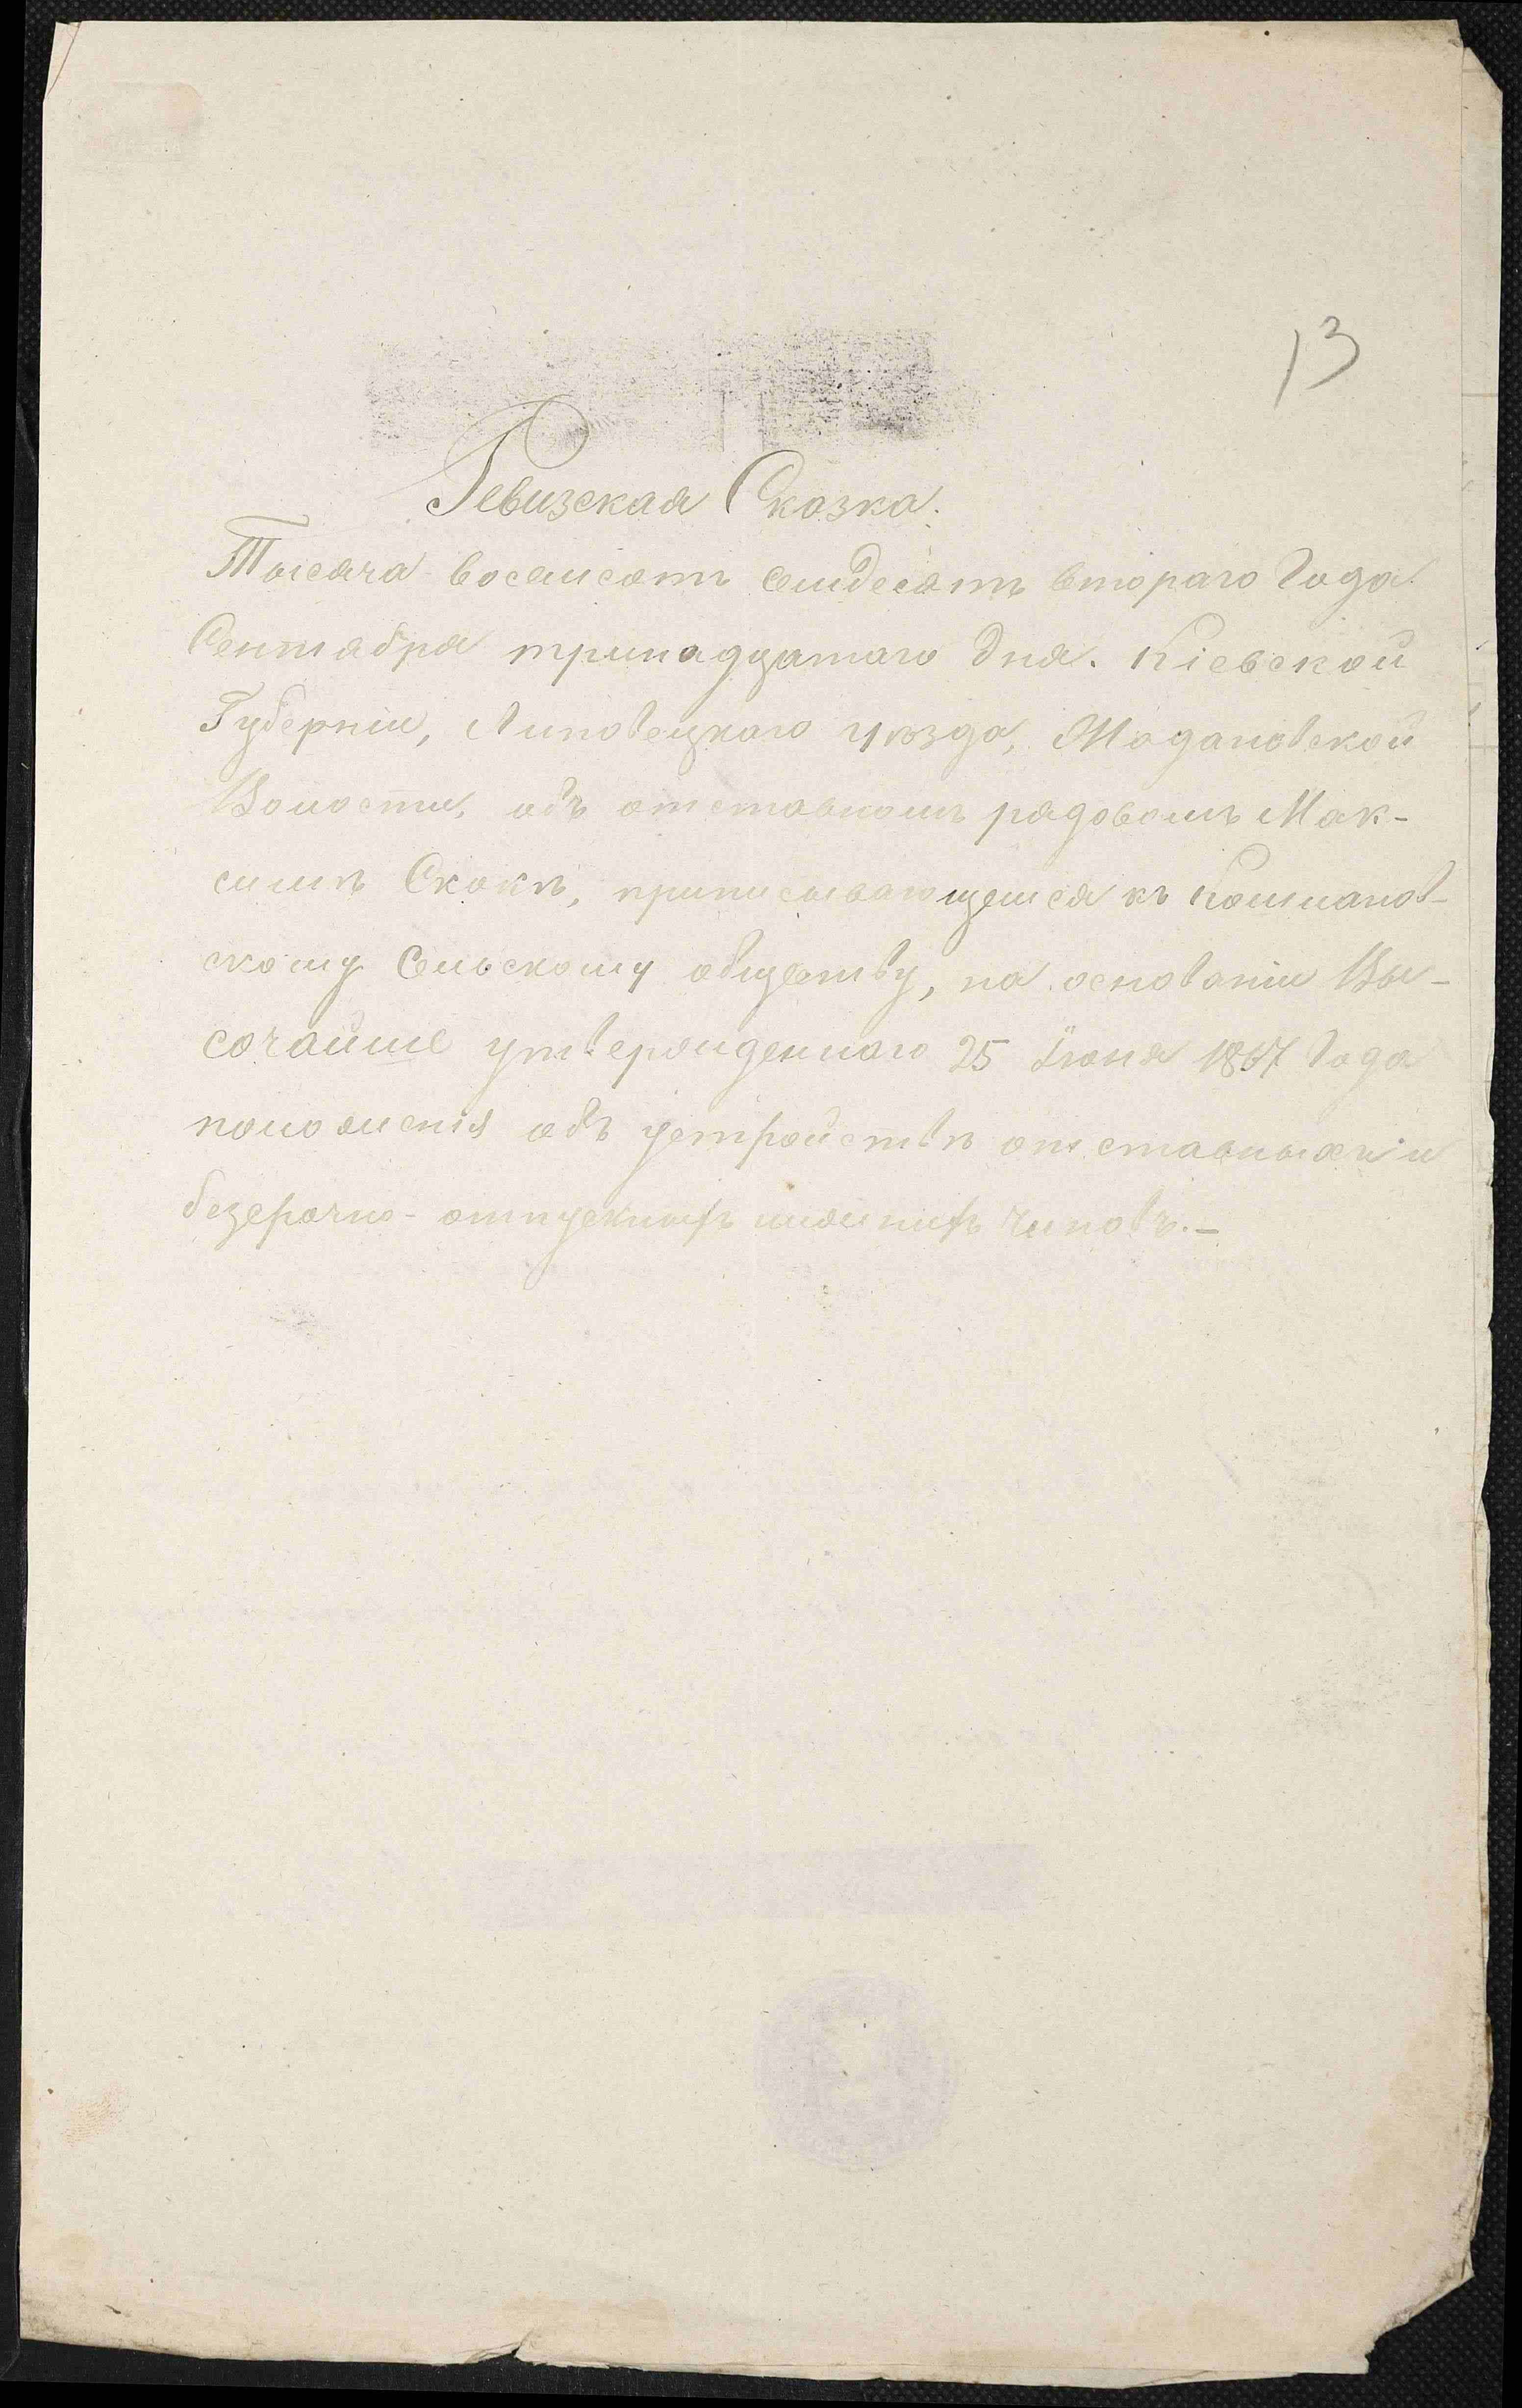 13
Ревизская Сказка.
Тысяча восемсотъ семдесятъ втораго Года
Сентября тринадцатаго дня. Кіевской
Губерніи, Липовецкаго уѣзда,
Волости, объ отставномъ рядовомъ Мак-
симѣ Скокѣ, приписывающемся къ
скому Сельскому обществу, на основаніи Вы-
сочайше утвержденнаго 25 Іюня 1867 Года
положенія объ устройствѣ отставныхъ и
безсрочно-отпускныхъ нижнихъ чиновъ.-